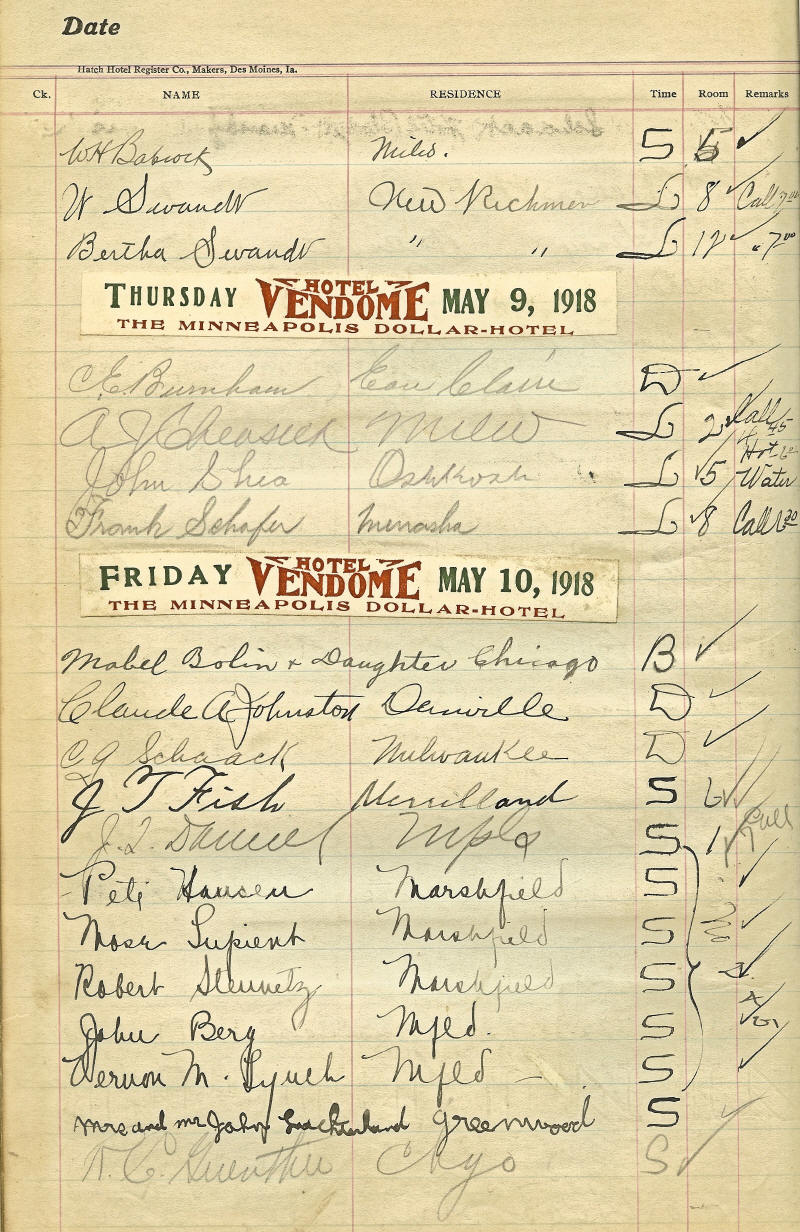 Date
Hatch Hotel Register Co., Makers, Des Moines, Ia.
Ck. NAME RESIDENCE Time Room Remarks
WH Babcock Milw. S 5 ✓
W Swandt New Richmon L 8 ✓ Call 7 00
Bertha Swandt " " L 12 ✓ " 7 00
THURSDAY HOTEL VENDOME MAY 9, 1918
THE MINNEAPOLIS DOLLAR-HOTEL
C.E. Burnham Eau Claire D ✓
A J Milw L 2 ✓ Call
John Shea Oshkosh L ✓ 5 Hot Water
Frank Schafer Menasha L ✓ 8 Call
FRIDAY HOTEL VENDOME MAY 10, 1918
THE MINNEAPOLIS DOLLAR-HOTEL
Mabel Bolin + Daughter Chicago B ✓
Claude A Johnston Danville D ✓
C J Schaack Milwaukee D ✓
J T Fish Merrilland S 6 ✓
J. Mpls S 1 ✓ Call 7
Pete Hansen Marshfield S ✓
Mose Supient Marshfield S ✓
Robert Marshfield S
John Berg Mfld. S ✓
Vernon M. Lynch Mfld S ✓
Mrs and Mr John Greenwood S ✓
R. C. Guenther Chgo S ✓